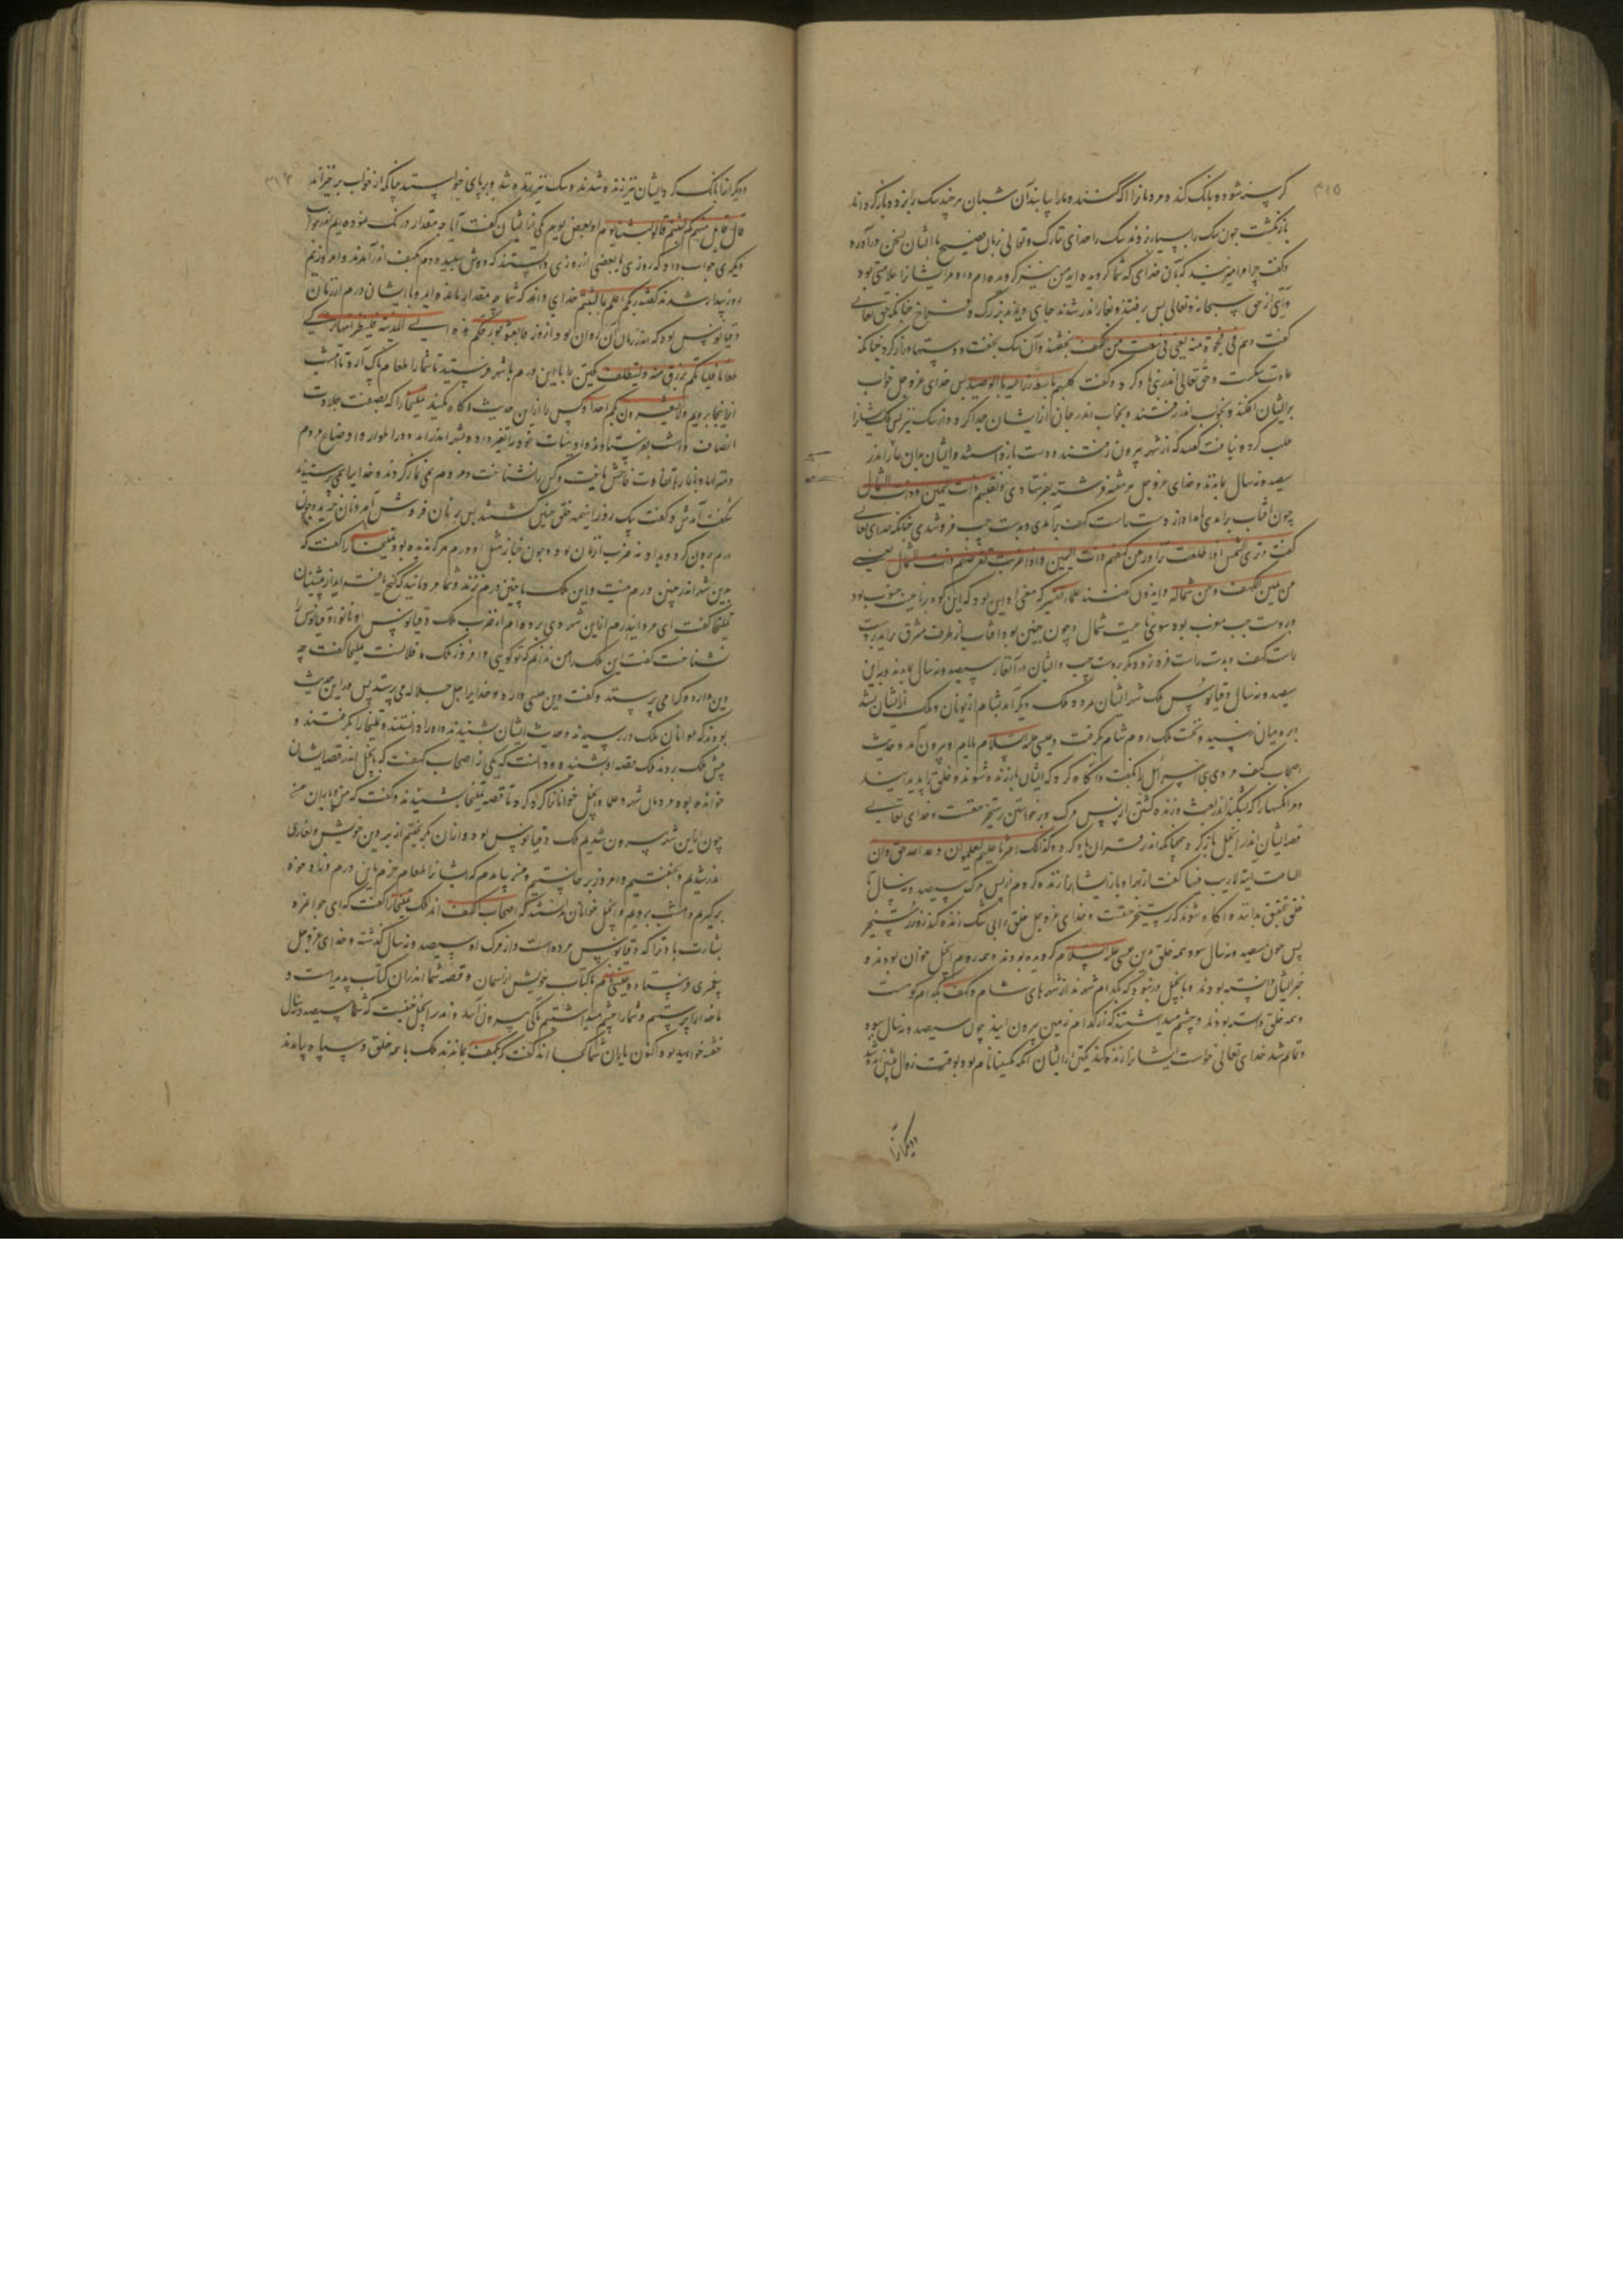 ۴۱۵
کرسنه شود و بانگ کند و مردمانرا آگه کنند و مارا بیابند آن شبان هر چند سگ را بزد و باز کرد
بازنگشت چون سگ را بسیار زدند سگ را خدای تبارک و تعالی زبان فصیح با ایشان سخن درآورد
و گفت چرا مرا میزنید که بآن خدای که شما گرویده اید من نیز گرویده ام و مر ایشانرا علامتی بود
و آیتی از حق سبحانه و تعالی پس برفتند و بغار اندر شدند جای دیدند بزرگ و فراخ چنانکه حق تعالی
گفت و هم فی فجوة منه یعنی فی سعت من الکهف بخفتند و آن سگ بخفت و دستها دراز کرد چنانکه
عادت سگست و حق تعالی اندر نبی یاد کرد و گفت و کلبهم باسط ذراعیه بالوصید پس خدای عز و جل خواب
بر ایشان افکند و بخواب اندر رفتند و بخواب اندر جان از ایشان جدا کرد و از سگ نیز پس ملک ایشانرا
طلب کرد و نیافت گفتند که از شهر بیرون رفتند دست بازداشتند و ایشان بدان غار اندر
سیصد و نه سال بماندند و خدای عز و جل هر هفته فرشته بفرستادی و نقلبهم ذات الیمین و ذات الشمال
چون آفتاب برآمدی بامداد از دست راست کهف برآمدی و بدست چپ فروشدی چنانکه خدای تعالی
گفت و تری الشمس اذا طلعت تزاور عن کهفهم ذات الیمین و اذا غربت تقرضهم ذات الشمال یعنی
من یمین الکهف و من شماله و ایدون گفتند علماء تفسیر که معنی او این بود که این کوه بر ناحیت جنوب بود
و بر دست چپ مغرب بود سوی ناحیت شمال و چون چنین بود آفتاب از طرف مشرق برآید بر دست
راست کهف و بدست راست فرو نرود مگر بر دست چپ و ایشان در آن غار سیصد و نه سال بماندند و درین
سیصد و نه سال دقیانوس ملک شهر ایشان مرد و ملک دیگر آمد بشام از یونان و ملک از ایشان بشد
و برومیان رسید و تخت ملک روم شام بگرفت و عیسی علیه السلام بایام او بیرون آمد و حدیث
اصحاب کهف مردی بنی اسرائیل را بگفت و آگاه کرد که ایشان باز زنده شوند و خلق ترا پدید آیند
و مر آنکسها را که بشکند اندر بعث و زنده گشتن از پس مرگ و برخواستن رستخیز حقست و خدای تعالی
قصه ایشان اندر انجیل یاد کرد و همچنانکه اندر قرآن یاد کرد و کذلک اعثرنا علیهم لیعلموا ان وعد الله حق و ان
الساعت آتیة لا ریب فیها گفت از بهر او باز ایشانرا زنده کردم از پس مرگ سیصد و نه سال تا
خلق بتحقیق بدانند و آگاه شوند که رستخیز حقست و خدای عز و جل خلق را بی شک زنده کند روز رستخیز
پس چون سیصد و نه سال ببود همه خلق بدین عیسی علیه السلام گرویده بودند و همه روم انجیل خوان بودند و
خبر ایشان دانسته بودند و بانجیل در نبود که بکدام شهرند از شهرهای شام و کهف بکدام کوهست
و همه خلق دانسته بودند و چشم میداشتند که از کدام زمین بیرون آیند چون سیصد و نه سال ببود
و تمام شد خدای تعالی خواست ایشانرا زنده کند یکتن از ایشان آنکه مکسلینا نام بود بوقت زوال پیشین زنده شد
دیگرانرا
دیگرانرا بانگ کرد و ایشان نیز زنده شدند و سگ نیز زنده شد و بر پای خواستند چنانکه از خواب برخیزند
قال قائل منهم کم لبثتم قالوا لبثنا یوما او بعض یوم یکی از ایشان گفت آیا چه مقدار درنگ نموده ایم اندر خواب
دیگری جواب داد که روزی یا بعضی از روزی دانستند که دوش سپیده دم بکهف اندر آمدند و امروز نیم
روز بیدار شدند گفتند ربکم اعلم بما لبثتم خدای داند که شما چه مقدار مانده اید و با ایشان درم از زمان
دقیانوس بود که اندر زمان آن روان بود و از روز فابعثوا احدکم بورقکم هذه الی المدینة فلینظر ایها ازکی
طعاما فلیاتکم برزق منه و لیتلطف یکتن را با این درم بشهر فرستید تا شما را طعام پاک آرد تا امشب
از اینجا برویم و لا یشعرن بکم احدا و کس را از این حدیث آگاه مکنید تملیخا را که بصفت جلادت
اتصاف داشت بفرستادند و او ثیاب خود را تغیر داده بشهر اندر آمد و در اطوار و اوضاع مردم
و شهر و بازارها تفاوت فاحش یافت و کس را نشناخت و مردم نمی نماز کردند و خدایرا می پرستیدند
شگفت آمدش و گفت یک روز را اینهمه خلق چنین گشتند پس بر نان فروش آمد و نان خرید و چون
درم بیرون کرد و بداد نه ضرب آن زمان بود و چون خباز مثل او درم هرگز ندیده بود تملیخا را گفت که
بدین شهر اندر چنین درم نیست و این ملک ما چنین درم نزند و شما مردمانید که گنج یافته اید از پیشینیان
تملیخا گفت ای مرد این درم از این شهر دی برده ام از ضرب ملک دقیانوس او نانوا دقیانوس را
نشناخت گفت این ملک را من ندانم که تو گویی و امروز ملک ما فلانست تملیخا گفت چه
دین دارد و کرا می پرستد و گفت دین عیسی دارد و خدایرا جل جلاله می پرستد پس در این حدیث
بودند که عوانان ملک در رسیدند و حدیث ایشان بشنیدند و او را دانستند و تملیخا را بگرفتند و
پیش ملک بردند ملک قصه او بشنید و دانست که یکی از اصحاب کهفست که بانجیل اندر قصه ایشان
خوانده بود مردمان شهر و علما و انجیل خوانانرا گرد کرد تا قصه تملیخا بشنیدند و گفت که من و یاران من
چون از این شهر بیرون شدیم ملک دقیانوس بود و از آن بگریختیم از بهر دین خویش و بغاری
اندر شدیم و بخفتیم و امروز برخاستیم و من بیامدم که ایشانرا طعام خرم باین درم و زاد و موزه
برگیریم و امشب برویم و انجیل خوانان دانستند که اصحاب الکهف اند ملک تملیخا را گفت که ای جوانمرد
بشارت باد ترا که دقیانوس مرده است و از مرگ او سیصد و نه سال گذشته و خدای عز و جل
پیغمبری فرستاد و عیسی نام با کتاب خویش از آسمان و قصه شما اندر آن کتاب پدید است و
ما خدایرا پرستیم و شما را چشم میداشتیم تا کی بیرون آیید و اندر انجیل خفتست که شما سیصد و نه سال
خفته خواهید بود و اکنون یاران شما کجا اند گفت که بکهف بماندند ملک با همه خلق و سپاه بیامدند